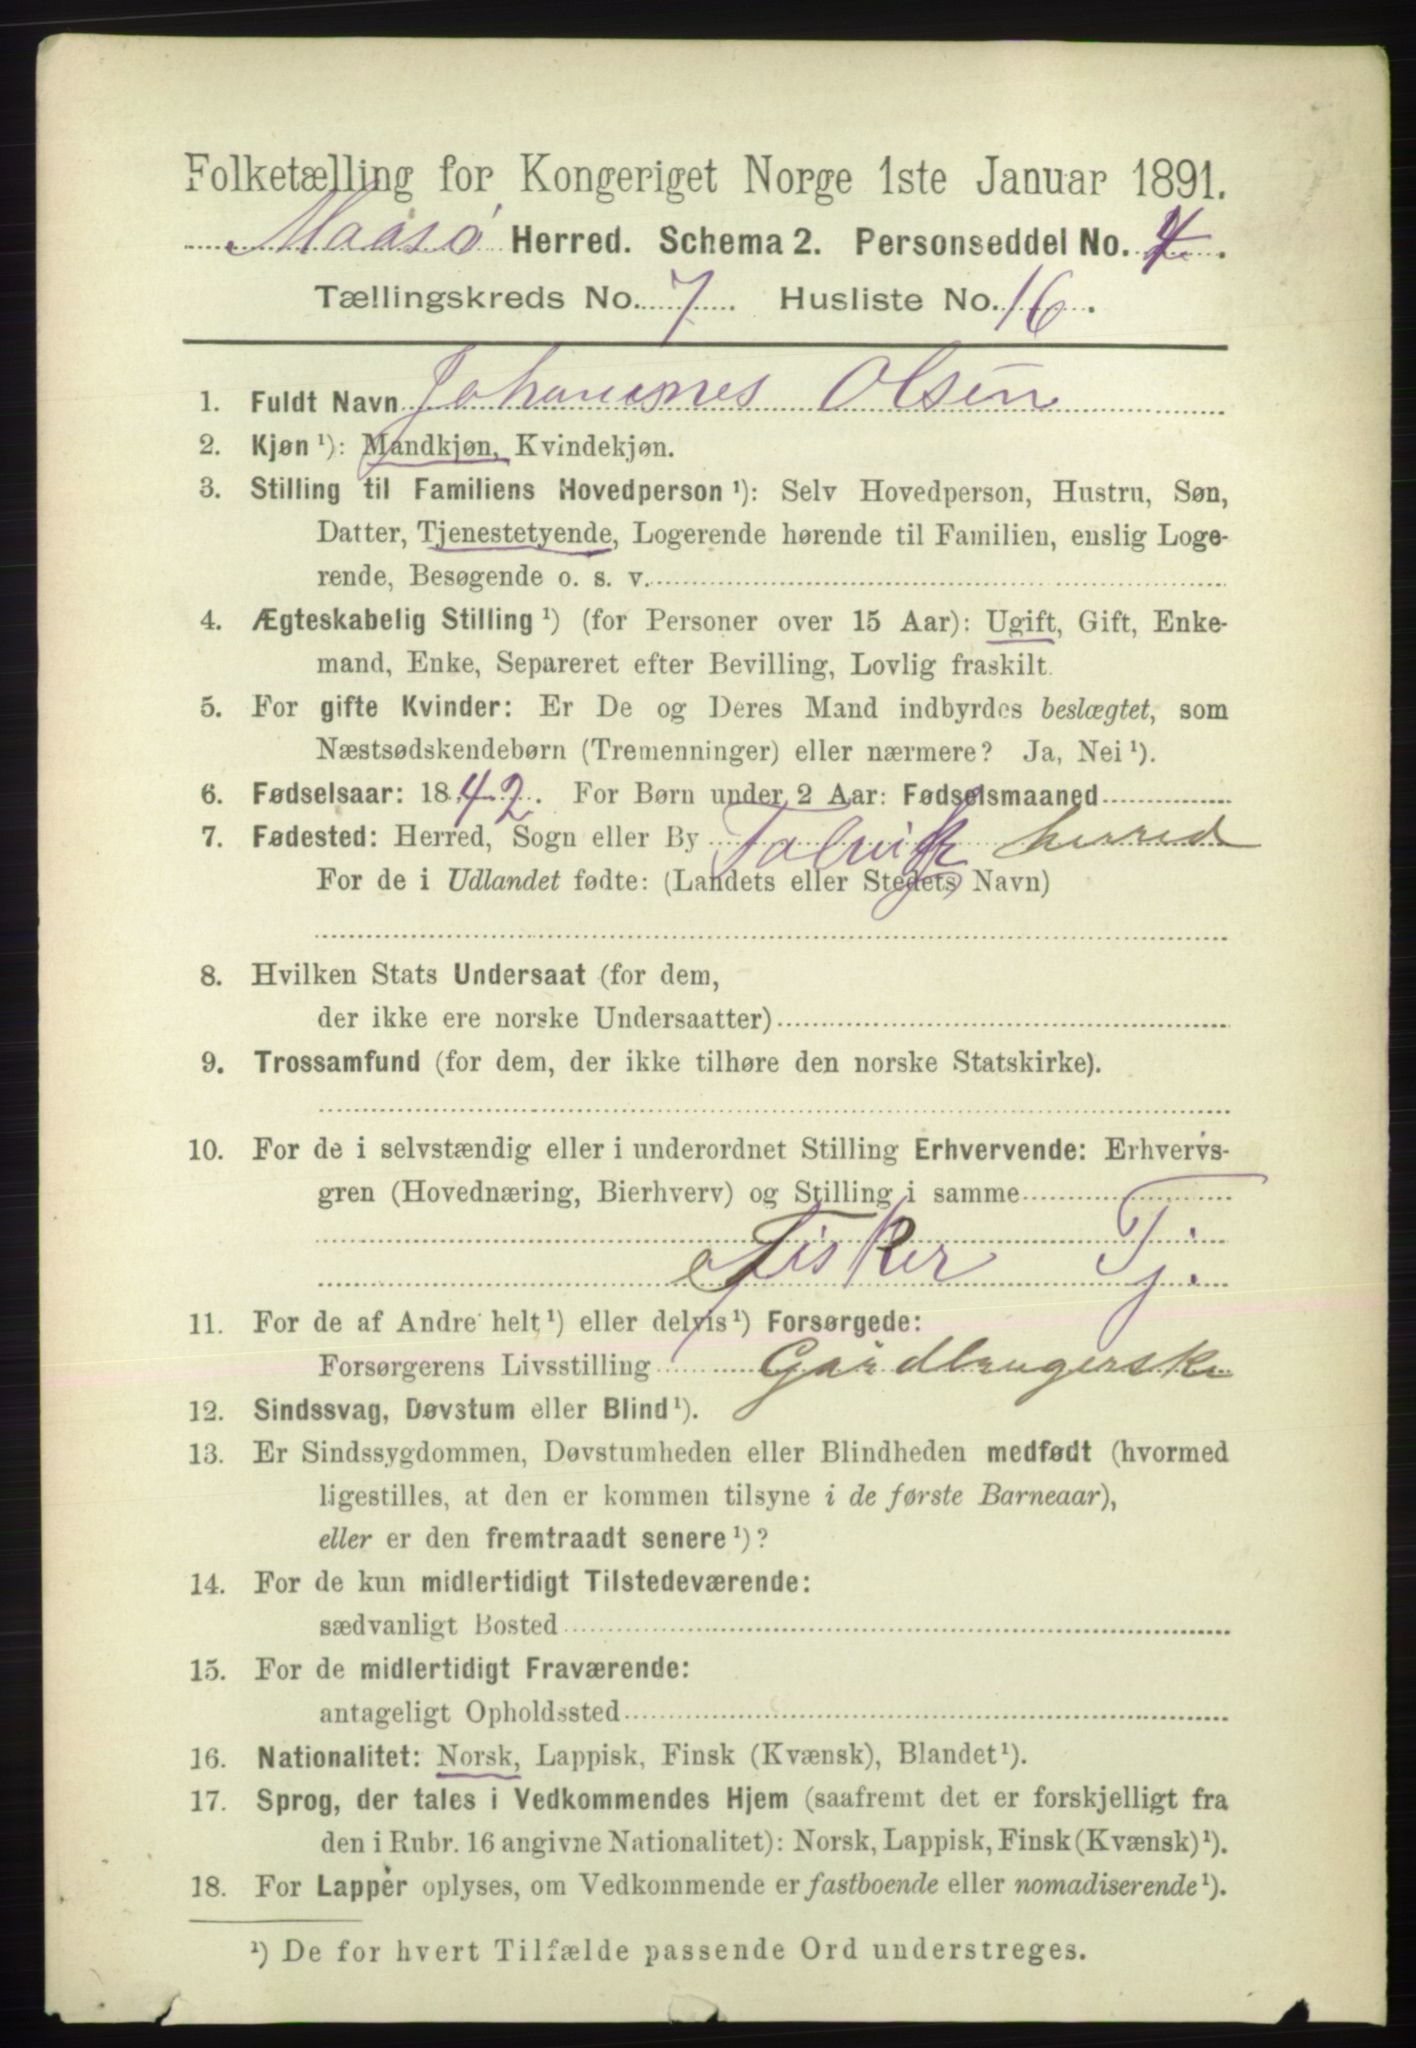 Folketælling for Kongeriget Norge 1ste Januar 1891.
Maasø Herred. Schema 2. Personseddel No. 4.
Tællingskreds No. 7. Husliste No. 16.
1. Fuldt Navn Johannes Olsen
2. Kjøn ¹): Mandkjøn, Kvindekjøn.
3. Stilling til Familiens Hovedperson ¹): Selv Hovedperson, Hustru, Søn,
Datter, Tjenestetyende, Logerende hørende til Familien, enslig Loge-
rende, Besøgende o. s. v.
4. Ægteskabelig Stilling ¹) (for Personer over 15 Aar): Ugift, Gift, Enke-
mand, Enke, Separeret efter Bevilling, Lovlig fraskilt.
5. For gifte Kvinder: Er De og Deres Mand indbyrdes beslægtet, som
Næstsødskendebørn (Tremenninger) eller nærmere? Ja, Nei ¹).
6. Fødselsaar: 1842. For Børn under 2 Aar: Fødselsmaaned
7. Fødested: Herred, Sogn eller By Talvik herred
For de i Udlandet fødte: (Landets eller Stedets Navn)
8. Hvilken Stats Undersaat (for dem,
der ikke ere norske Undersaatter)
9. Trossamfund (for dem, der ikke tilhøre den norske Statskirke).
10. For de i selvstændig eller i underordnet Stilling Erhvervende: Erhvervs-
gren (Hovednæring, Bierhverv) og Stilling i samme
Fisker Tj.
11. For de af Andre helt ¹) eller delvis ¹) Forsørgede:
Forsørgerens Livsstilling Gårdbrugerske
12. Sindssvag, Døvstum eller Blind ¹).
13. Er Sindssygdommen, Døvstumheden eller Blindheden medfødt (hvormed
ligestilles, at den er kommen tilsyne i de første Barneaar),
eller er den fremtraadt senere ¹)?
14. For de kun midlertidigt Tilstedeværende:
sædvanligt Bosted
15. For de midlertidigt Fraværende:
antageligt Opholdssted
16. Nationalitet: Norsk, Lappisk, Finsk (Kvænsk), Blandet ¹).
17. Sprog, der tales i Vedkommendes Hjem (saafremt det er forskjelligt fra
den i Rubr. 16 angivne Nationalitet): Norsk, Lappisk, Finsk (Kvænsk) ¹).
18. For Lapper oplyses, om Vedkommende er fastboende eller nomadiserende ¹).
¹) De for hvert Tilfælde passende Ord understreges.